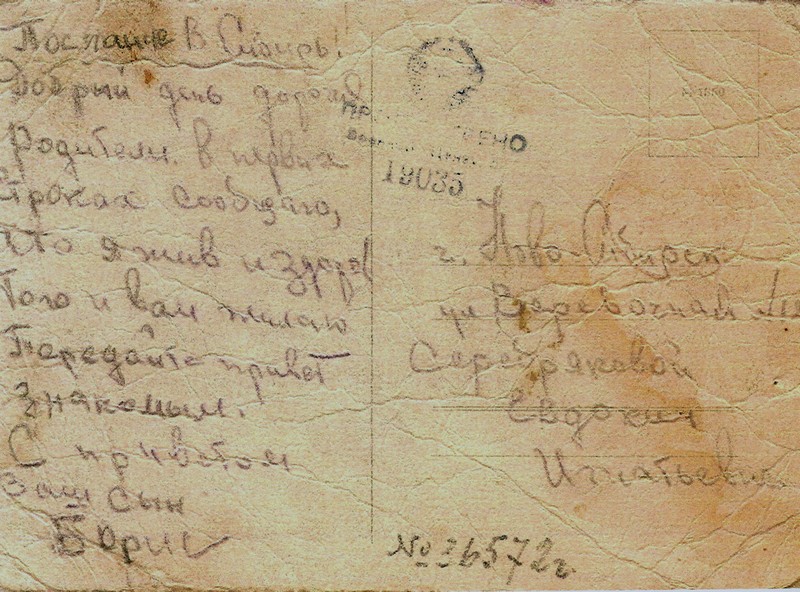 Послание в Сибирь!
Добрый день дорогие
Родители. в первых
строках сообщаю,
что я жив и здоров
Того и вам желаю
Передайте привет
Знакомым.
С приветом
Ваш сын
Борис
19035
г. Ново-Сибирск
ул Веревочная
Серебряковой
Евдокии
Игнатьевне
№36572г.